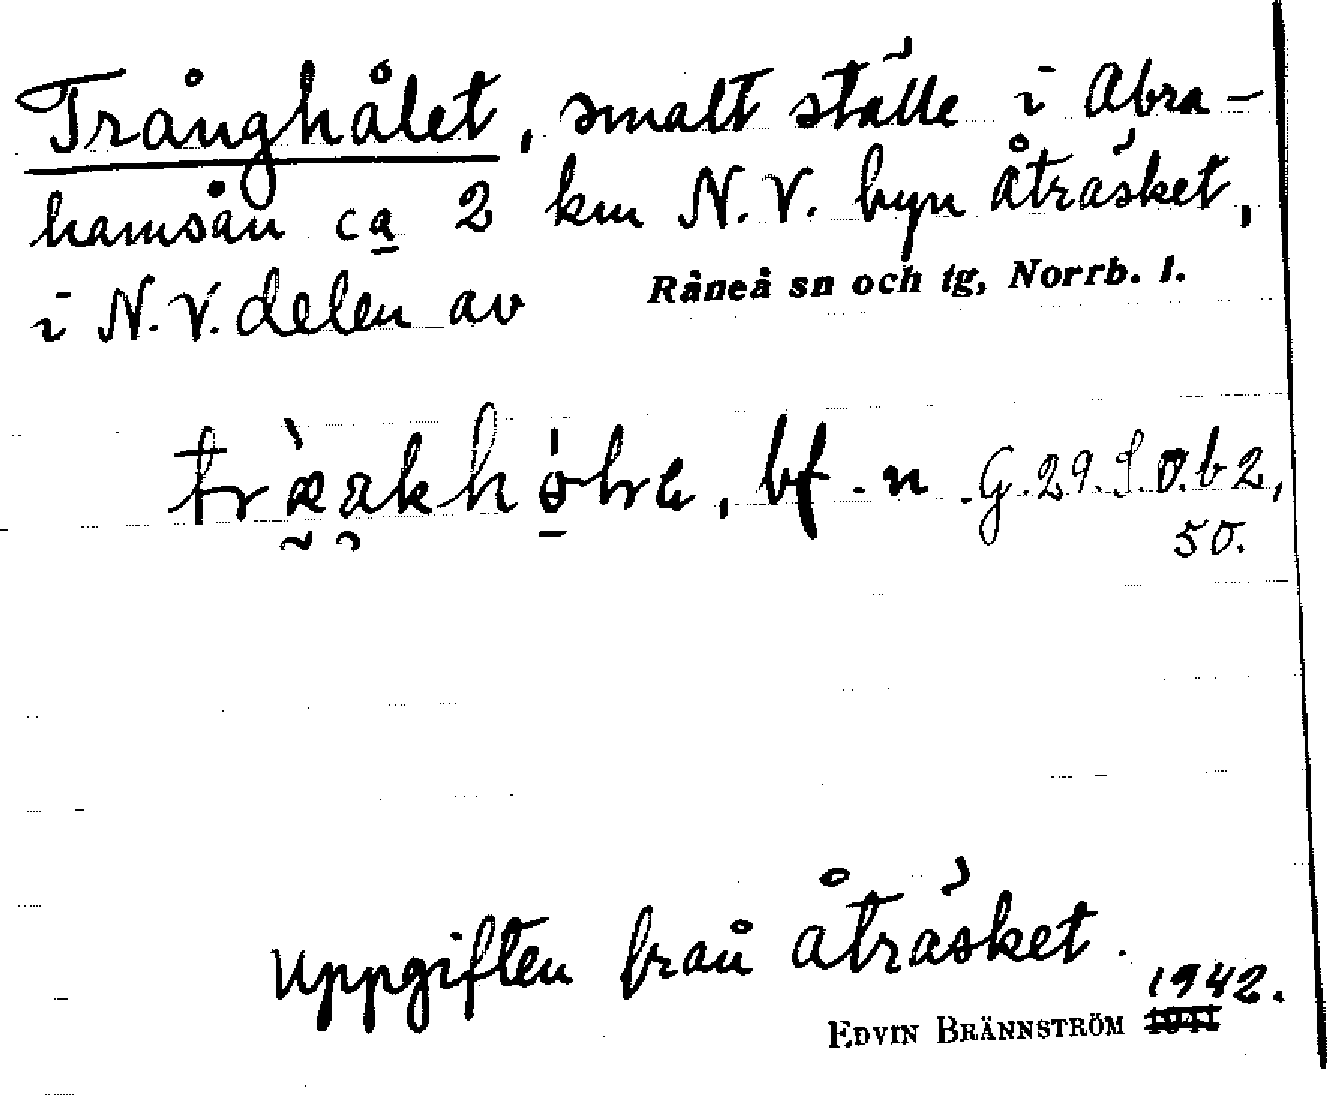 Trånghålet, smalt ställe i Abra-
hamsån ca 2 km N.V. byn Åträsket,
i N.V. delen av Råneå sn och tg, Norrb. l.
bf. n G.29. S.O.b2,
50.
Uppgiften från Åträsket.
EDVIN BRÄNNSTRÖM 1942.